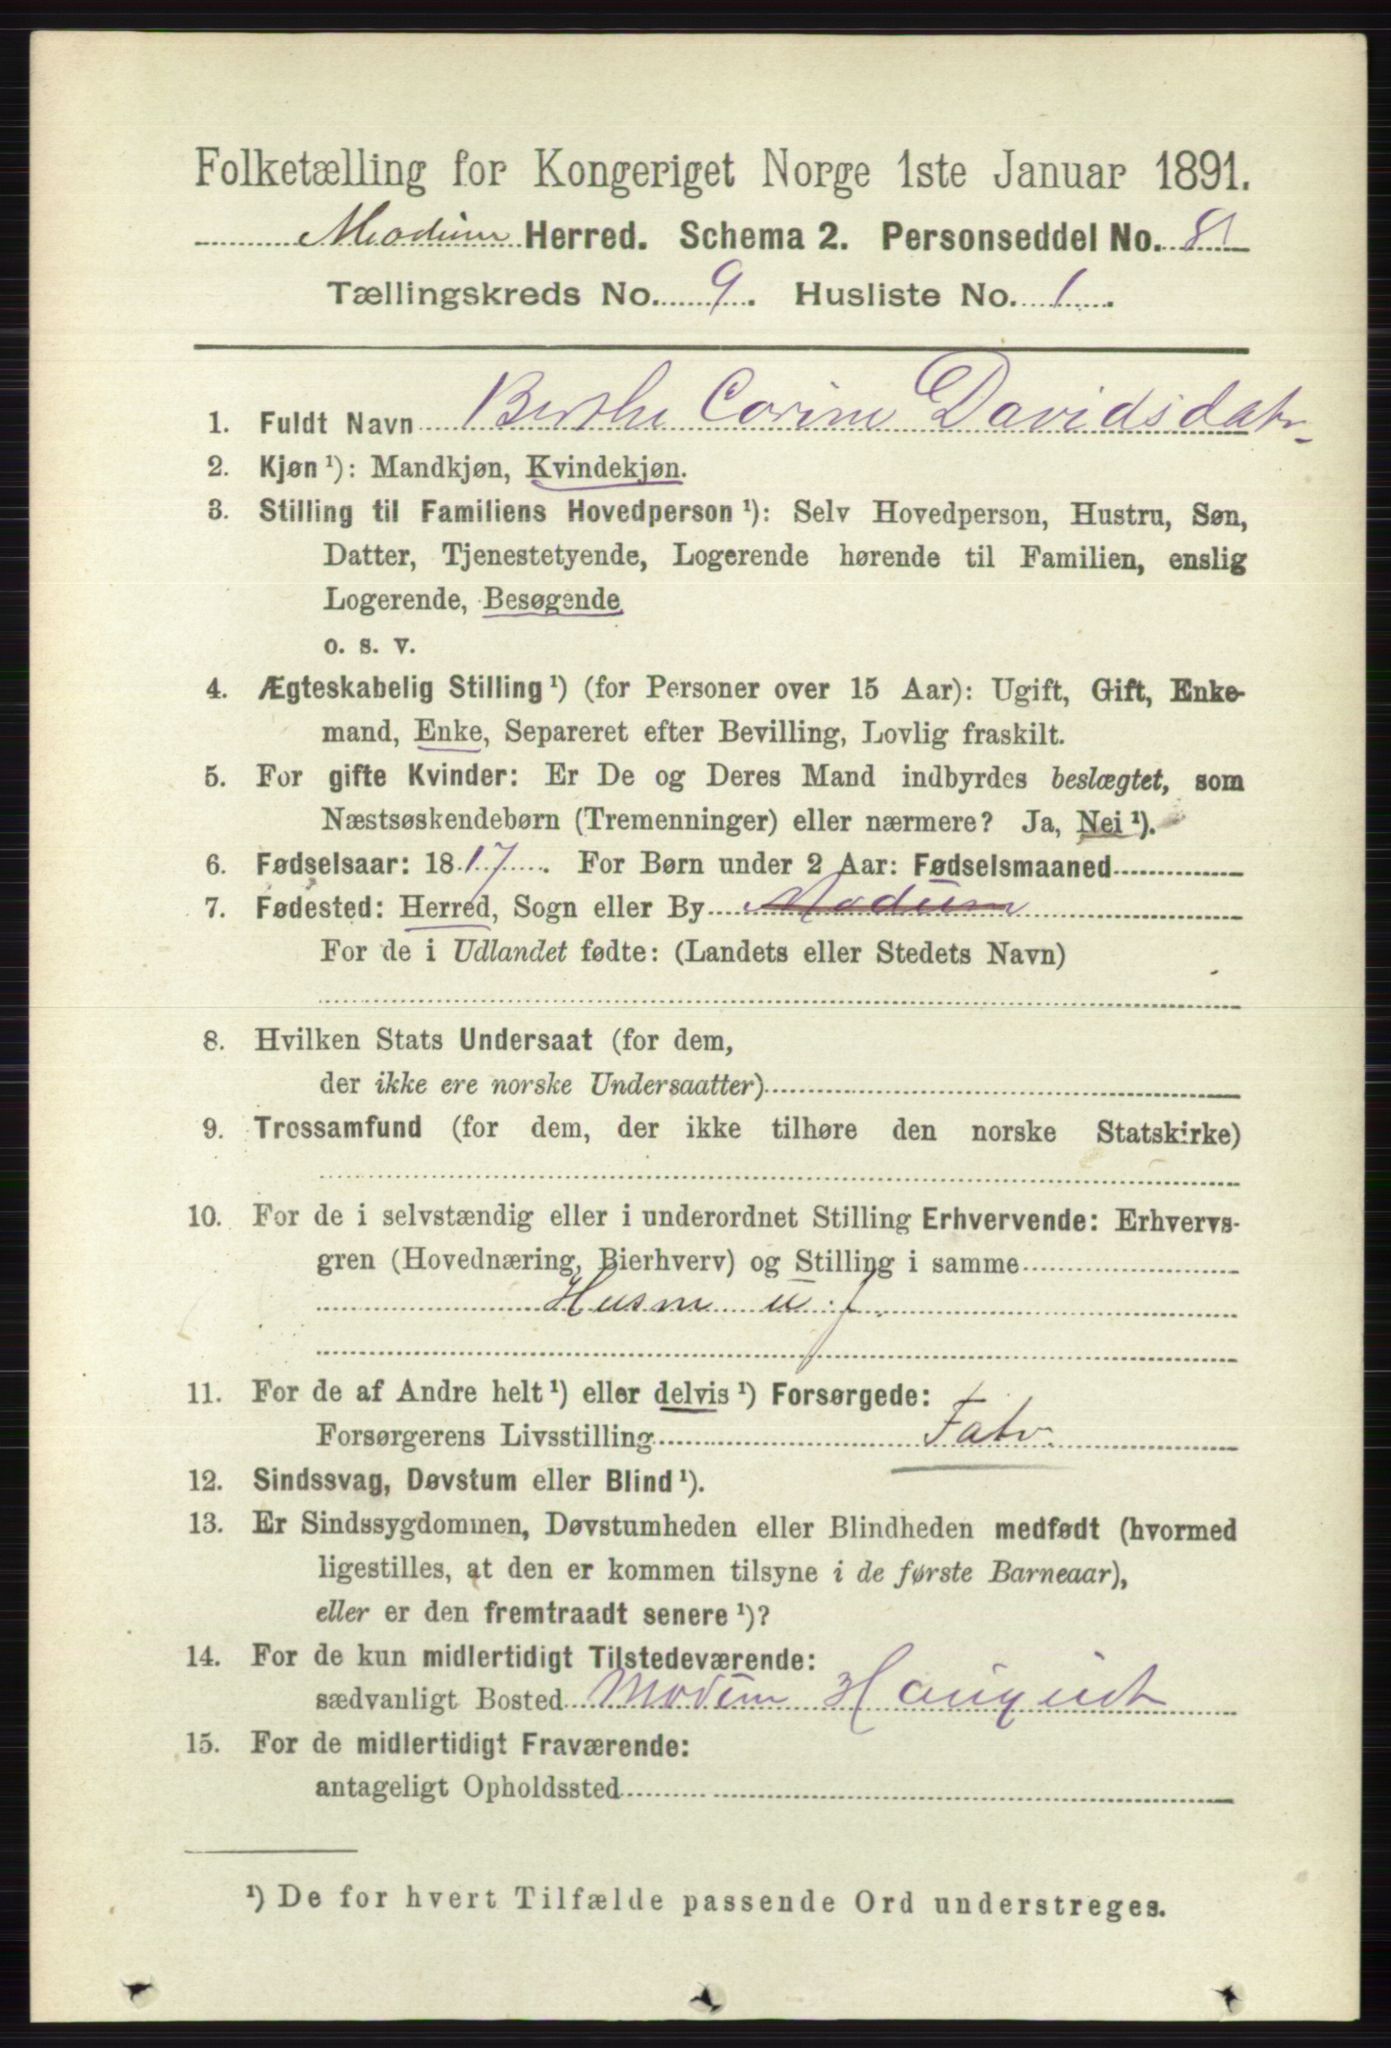 Folketælling for Kongeriget Norge 1ste Januar 1891.
Modum Herred. Schema 2. Personseddel No. 8
Tællingskreds No. 9. Husliste No. 1.
1. Fuldt Navn Berthe Corine Davidsdatr
2. Kjøn ¹): Mandkjøn, Kvindekjøn.
3. Stilling til Familiens Hovedperson ¹): Selv Hovedperson, Hustru, Søn,
Datter, Tjenestetyende, Logerende hørende til Familien, enslig
Logerende, Besøgende
o. s. v.
4. Ægteskabelig Stilling ¹) (for Personer over 15 Aar): Ugift, Gift, Enke-
mand, Enke, Separeret efter Bevilling, Lovlig fraskilt.
5. For gifte Kvinder: Er De og Deres Mand indbyrdes beslægtet, som
Næstsøskendebørn (Tremenninger) eller nærmere? Ja, Nei ¹).
6. Fødselsaar: 1817. For Børn under 2 Aar: Fødselsmaaned
7. Fødested: Herred, Sogn eller By Modum
For de i Udlandet fødte: (Landets eller Stedets Navn)
8. Hvilken Stats Undersaat (for dem,
der ikke ere norske Undersaatter)
9. Trossamfund (for dem, der ikke tilhøre den norske Statskirke)
10. For de i selvstændig eller i underordnet Stilling Erhvervende: Erhvervs-
gren (Hovednæring, Bierhverv) og Stilling i samme
Husm u. j.
11. For de af Andre helt ¹) eller delvis ¹) Forsørgede:
Forsørgerens Livsstilling Fatv.
12. Sindssvag, Døvstum eller Blind ¹).
13. Er Sindssygdommen, Døvstumheden eller Blindheden medfødt (hvormed
ligestilles, at den er kommen tilsyne i de første Barneaar),
eller er den fremtraadt senere ¹)?
14. For de kun midlertidigt Tilstedeværende:
sædvanligt Bosted Modum
15. For de midlertidigt Fraværende:
antageligt Opholdssted
¹) De for hvert Tilfælde passende Ord understreges.